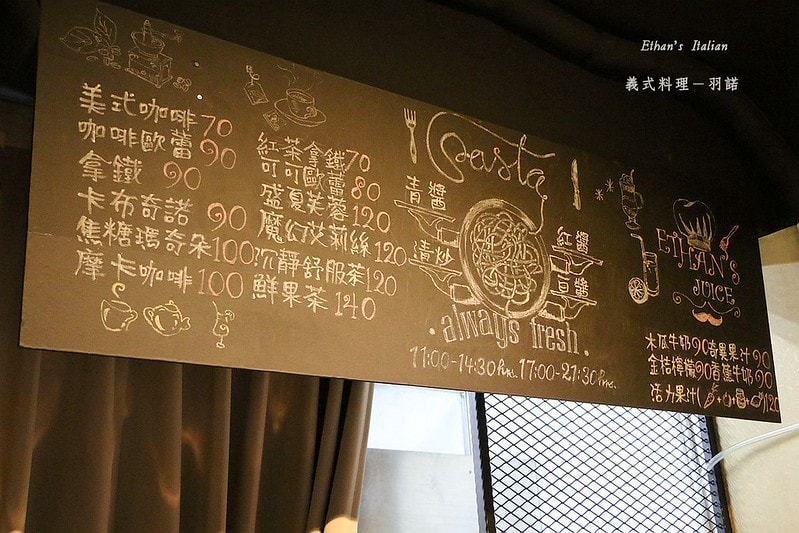 Ethan's Italian
義式料理－羽諾
美式咖啡 70
咖啡歐蕾 90
拿鐵 90
卡布奇諾 90
焦糖瑪奇朵 100
摩卡咖啡 100
紅茶拿鐵 70
可可歐蕾 80
盛夏芙蓉 120
魔幻艾莉絲 120
沉靜舒服茶 120
鮮果茶 140
pasta
青醬
清炒
紅醬
always fresh.
11:00-14:30 17:00-21:30
ETHAN'S
JUICE
木瓜牛奶 90 奇異果汁 90
金桔檸檬 90 香蕉牛奶 90
活力果汁( + + + ) 120